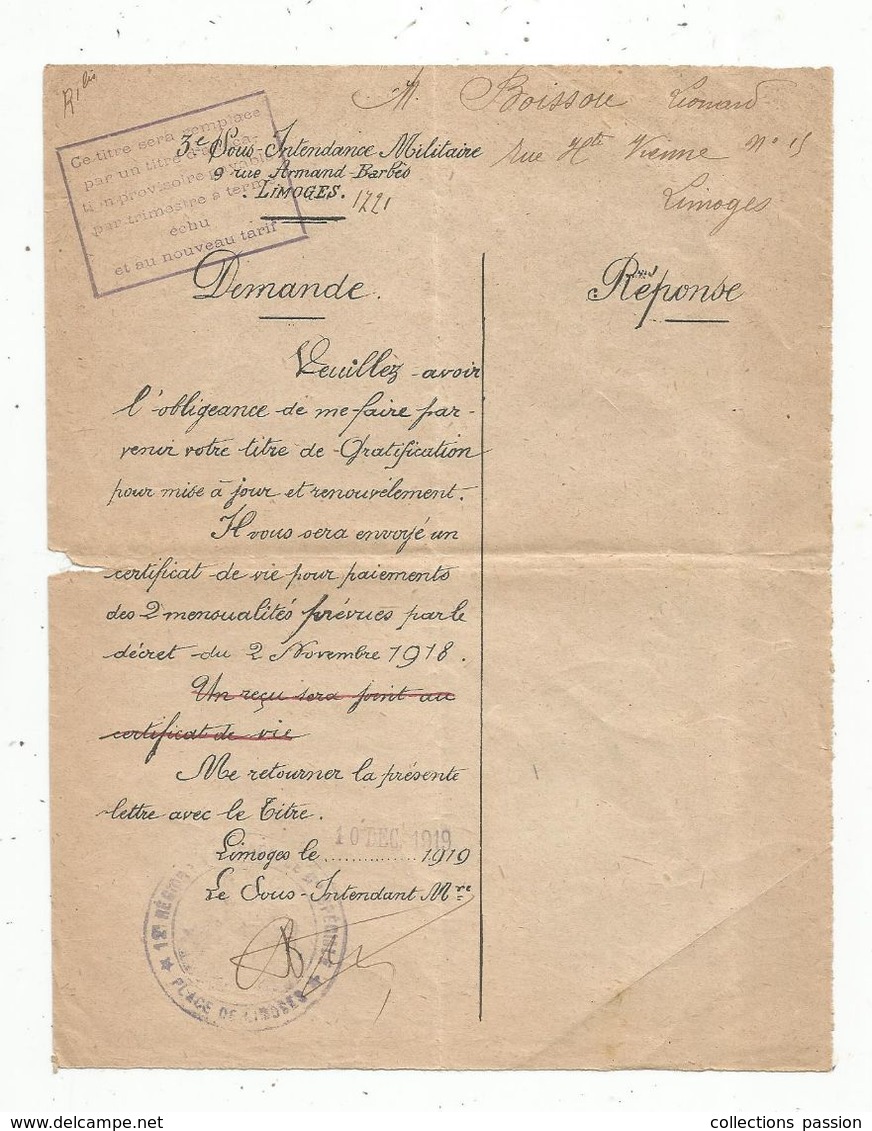 M. Boissou Léonard
rue Hte Vienne N° 15
Limoges
Ce titre sera remplacé
par un titre d'alloca-
tion provisoire payable
par trimestre à terme
échu
et au nouveau tarif
3e Sous-Intendance Militaire
9 rue Armand-Barbès
LIMOGES.
1221
Demande.
Veuillez avoir
l'obligeance de me faire par-
venir votre titre de Gratification
pour mise à jour et renouvèlement.
Il vous sera envoyé un
certificat de vie pour paiements
des 2 mensualités prévues par le
décret du 2 Novembre 1918.
Un reçu sera joint au
certificat de vie
Me retourner la présente
lettre avec le Titre.
Limoges le ............... 1919
10 DEC 1919
Le Sous-Intendant Mre
12e RÉGION
PLACE DE LIMOGES
Réponse
collections passion